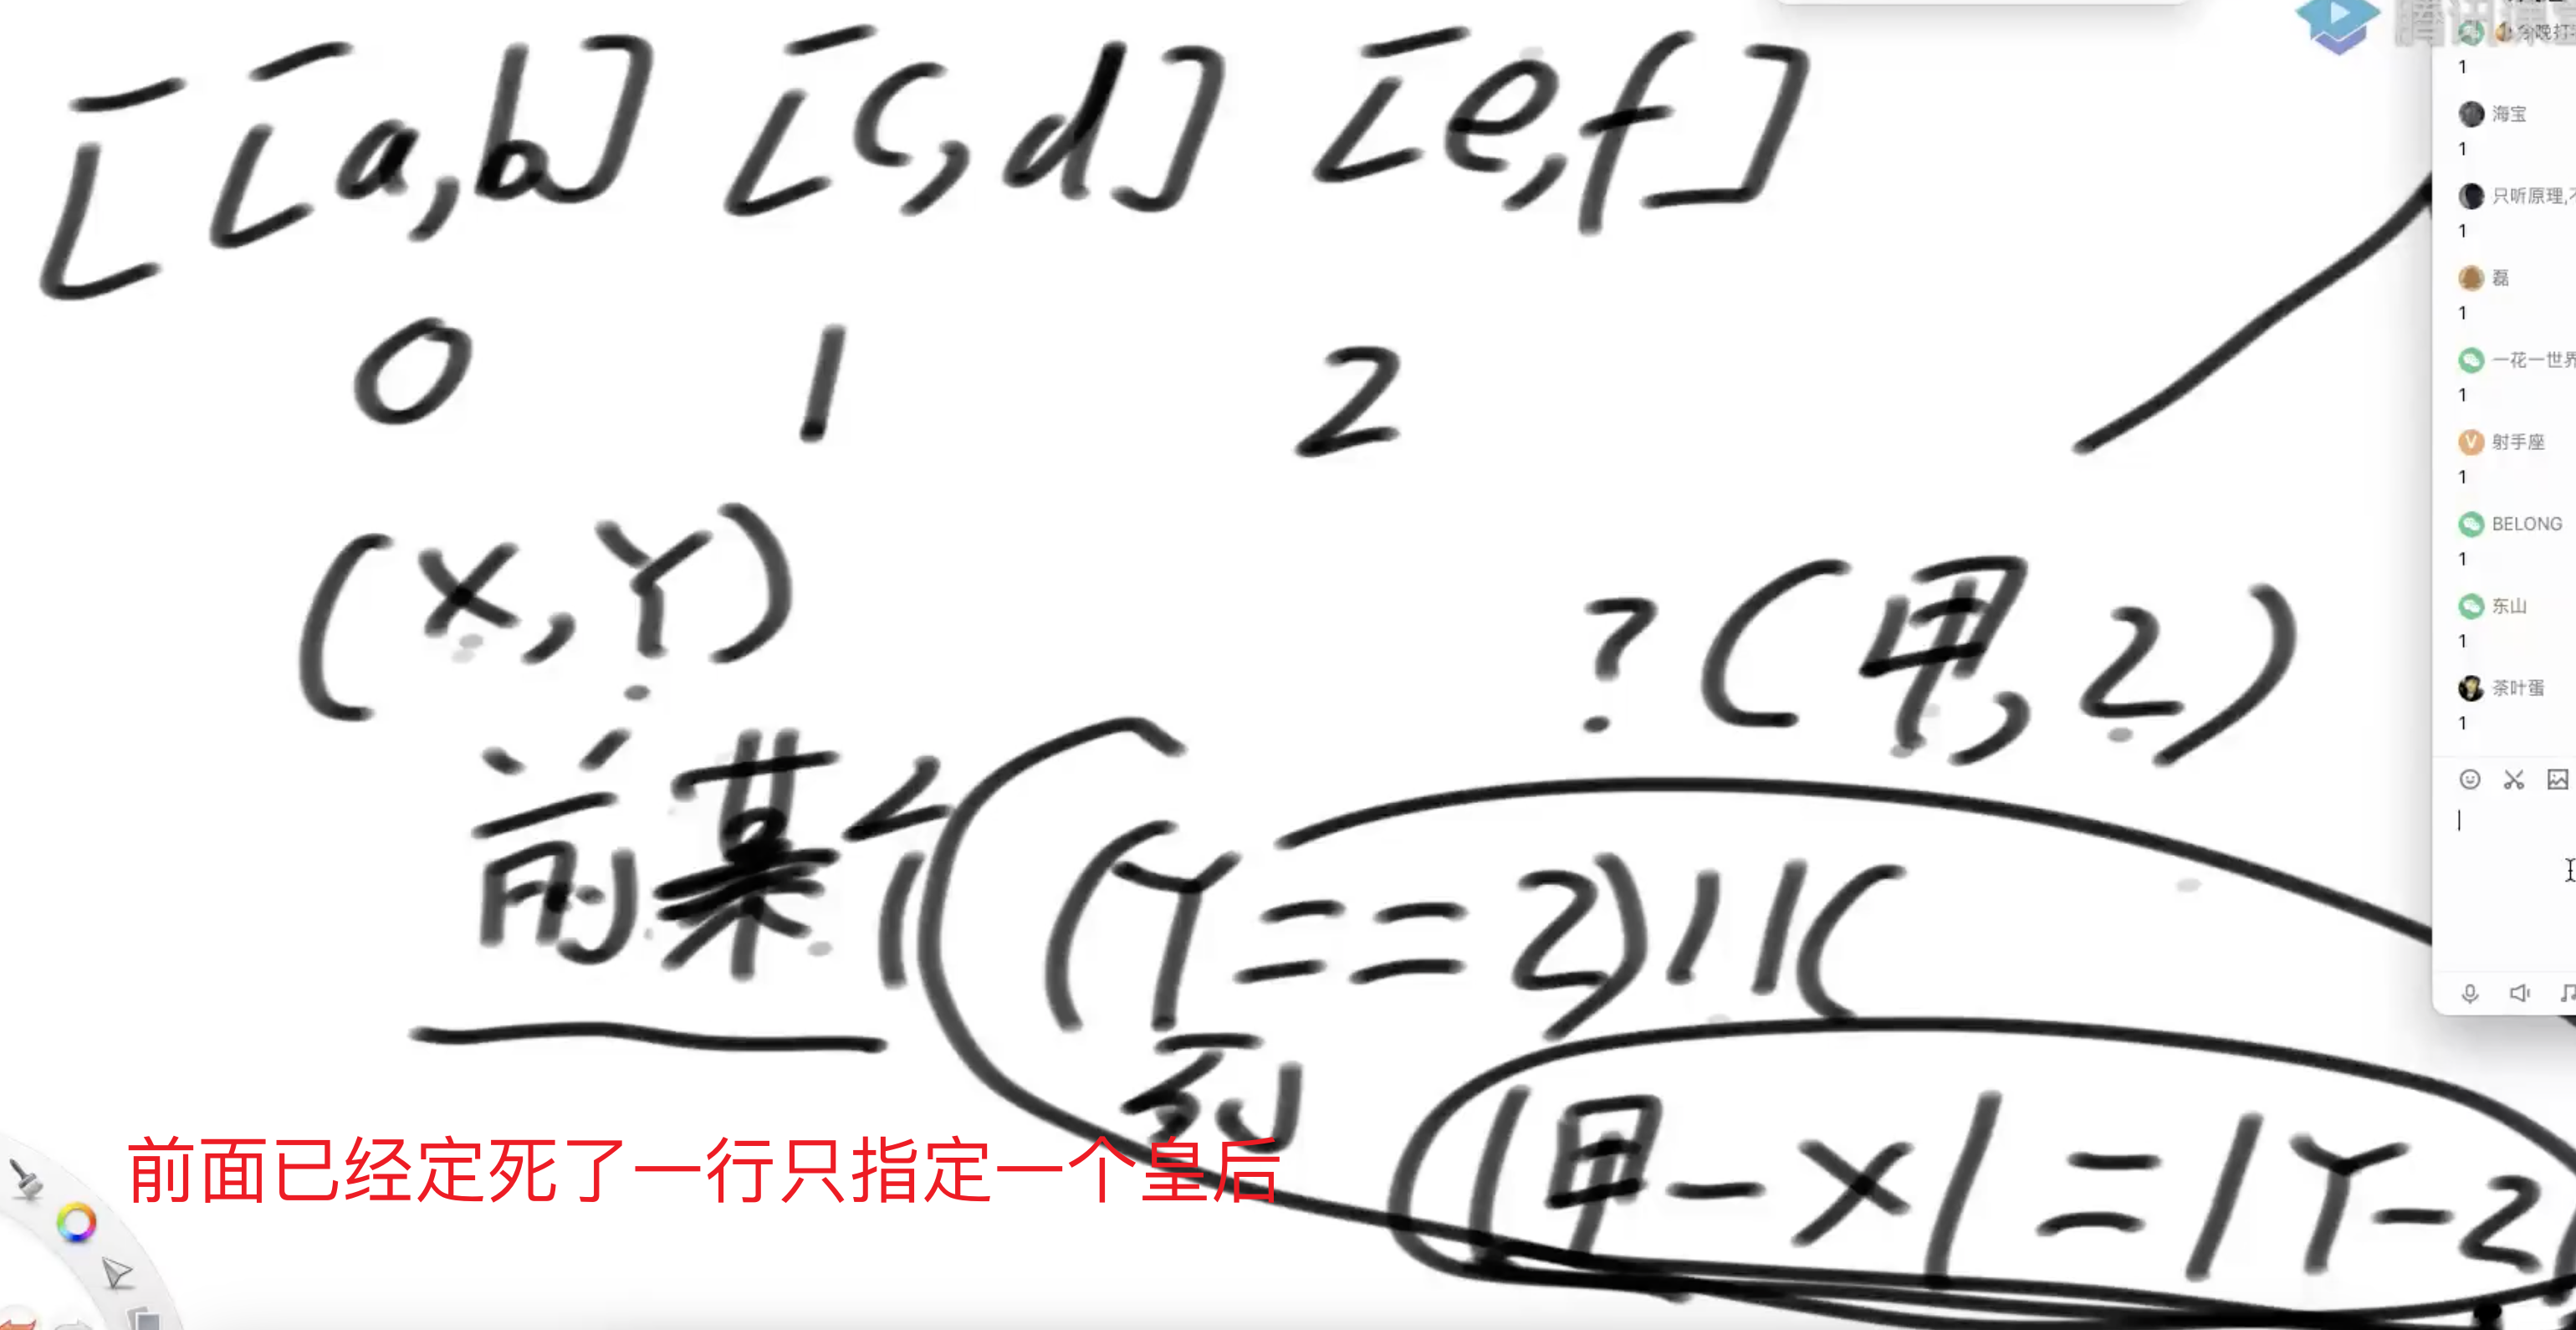 [ [a,b] [c,d] [e,f]
0 1 2
(X,Y)
? (甲,乙)
前某个
(Y==乙)||(
列
|甲-X|=|Y-乙
前面已经定死了一行只指定一个皇后
1
海宝
1
只听原理,
1
磊
1
一花一世界
1
V 射手座
1
BELONG
1
东山
1
茶叶蛋
1